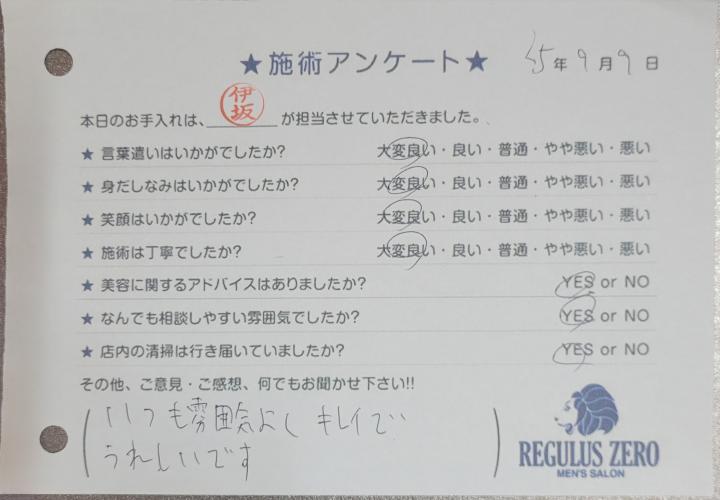 ★施術アンケート★ 5年9月9日
本日のお手入れは、伊坂が担当させていただきました。
★ 言葉遣いはいかがでしたか? 大変良い・良い・普通・やや悪い・悪い
★ 身だしなみはいかがでしたか? 大変良い・良い・普通・やや悪い・悪い
★ 笑顔はいかがでしたか? 大変良い・良い・普通・やや悪い・悪い
★ 施術は丁寧でしたか? 大変良い・良い・普通・やや悪い・悪い
★ 美容に関するアドバイスはありましたか? YES or NO
★ なんでも相談しやすい雰囲気でしたか? YES or NO
★ 店内の清掃は行き届いていましたか? YES or NO
その他、ご意見・ご感想、何でもお聞かせ下さい!!
いつも雰囲気よく キレイで
うれしいです
REGULUS ZERO
MEN'S SALON